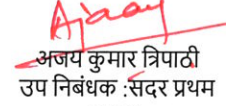 Ajaay
अजय कुमार त्रिपाठी
उप निबंधक :सदर प्रथम